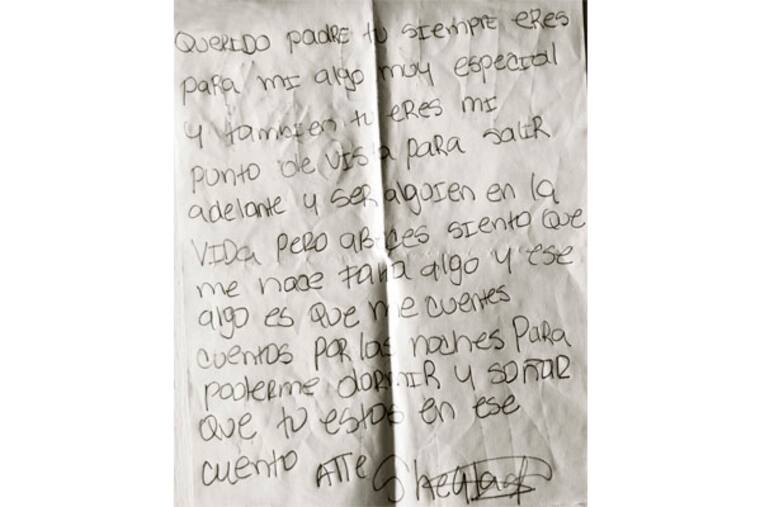 QUERIDO padRE tu siempre eRes
paRa mi algo muy especial
y tambien tu eRes mi
punto de vista paRa salir
adelante y ser alguien en la
VIDa peRo abeces siento que
me hace falta algo y ese
algo es que me cuentes
cuentos poR las noches paRa
podeRme doRmiR y soñaR
que tu estas en ese
cuento ATTe